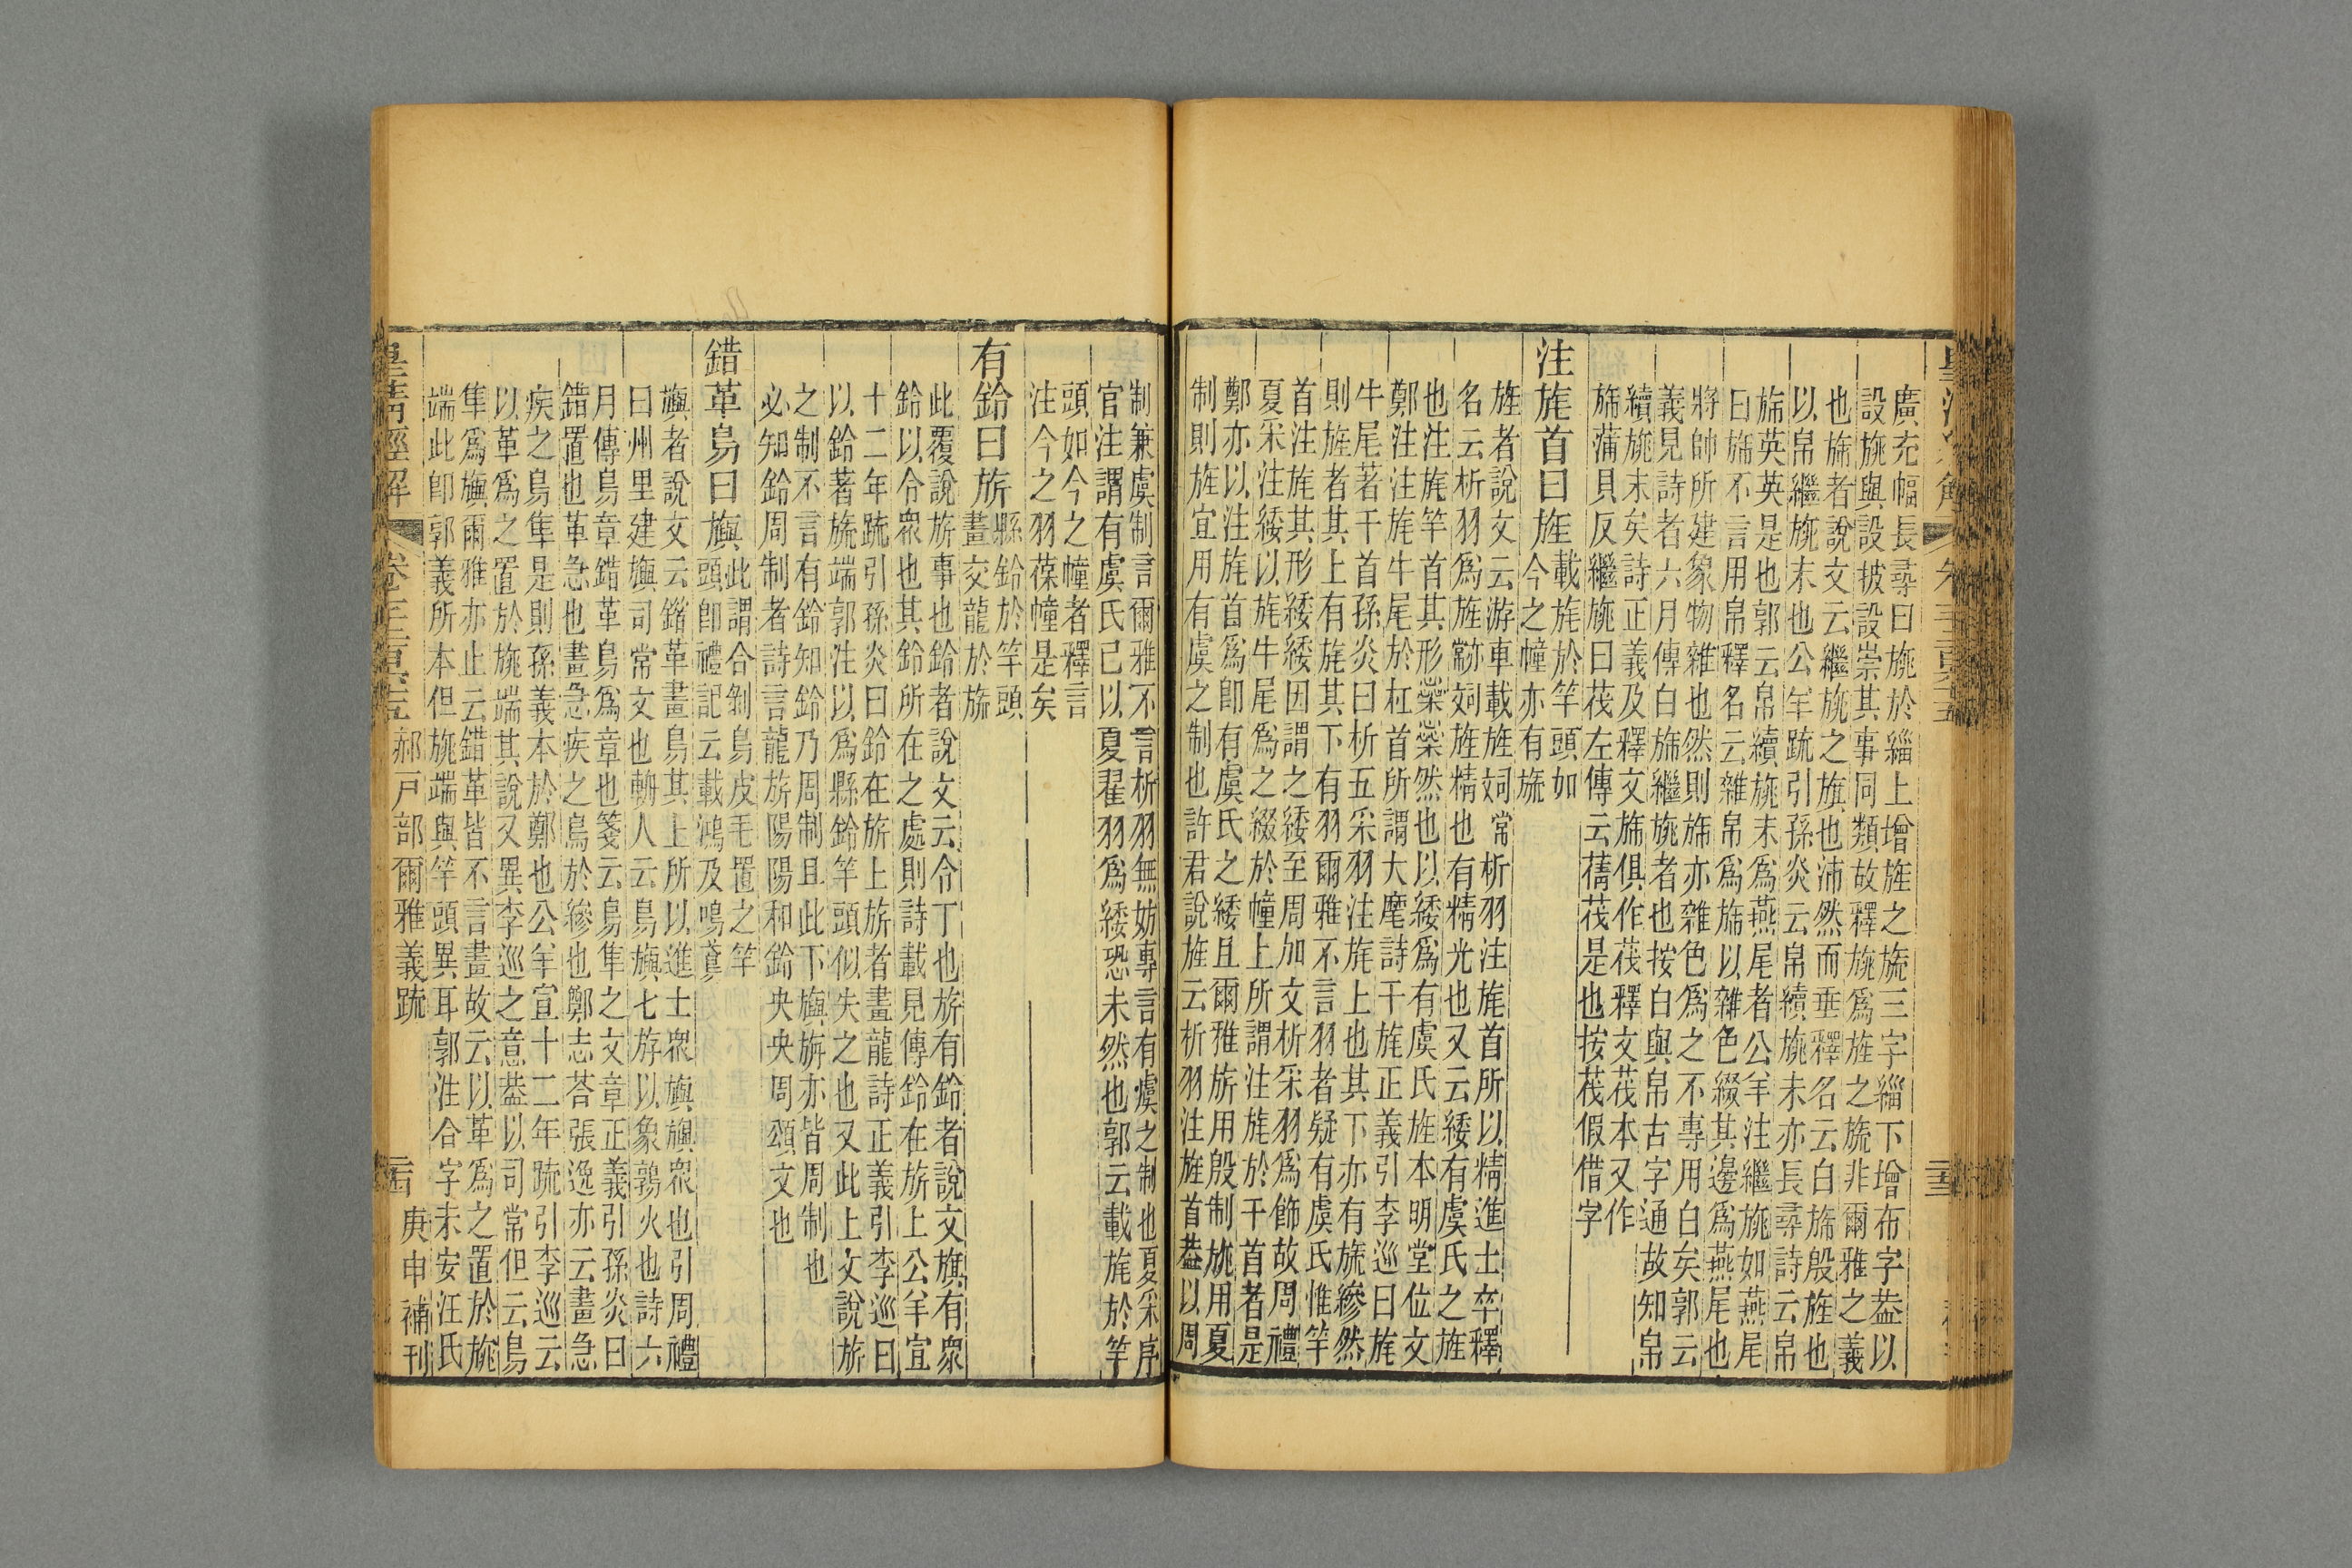 廣充幅長尋曰旐於緇上增旌之旒三字緇下增布字葢以
設旐與設披設崇其事同類故釋旐爲旌之旒非爾雅之義
也旆者說文云繼旐之旗也沛然而垂釋名云白旆殷旌也
以帛繼旐末也公羊疏引孫炎云帛續旐末亦長尋詩云帛
旆英英是也郭云帛續旐末爲燕尾者公羊注繼旐如燕尾
曰旆不言用帛釋名云雜帛爲旆以雜色綴其邊爲燕尾也
將帥所建象物雜也然則旆亦雜色爲之不專用白矣郭云
義見詩者六月傳白旆繼旐者也按白與帛古字通故知帛
續旐末矣詩正義及釋文旆俱作茷釋文茷本又作
旆蒲貝反繼旐曰茷左傳云蒨茷是也按茷假借字
注旄首曰旌載旄於竿頭如
今之幢亦有旒
旌者說文云游車載旌 析羽注旄首所以精進士卒釋
名云析羽爲旌 旌精也有精光也又云緌有虞氏之旌
也注旄竿首其形燊燊然也以緌爲有虞氏旌本明堂位文
鄭注注旄牛尾於杠首所謂大麾詩干旄正義引李巡曰旄
牛尾著干首孫炎曰析五采羽注旄上也其下亦有旒縿然
則旌者其上有旄其下有羽爾雅不言羽者疑有虞氏惟竿
首注旄其形緌緌因謂之緌至周加文析采羽爲飾故周禮
夏采注緌以旄牛尾爲之綴於幢上所謂注旄於干首者是
鄭亦以注旄首爲卽有虞氏之緌且爾雅旂用殷制旐用夏
制則旌宜用有虞之制也許君說旌云析羽注旌首葢以周
制兼虞制言爾雅不言析羽無妨專言有虞之制也夏采序
官注謂有虞氏已以夏翟羽爲緌恐未然也郭云載旄於竿
頭如今之幢者釋言
注今之羽葆幢是矣
有鈴曰旂縣鈴於竿頭
畫交龍於旒
此覆說旂事也鈴者說文云令丁也旂有鈴者說文旗有眾
鈴以令眾也其鈴所在之處則詩載見傳鈴在旂上公羊宣
十二年疏引孫炎曰鈴在旂上旂者畫龍詩正義引李巡曰
以鈴著旒端郭注以爲縣鈴竿頭似失之也又此上文說旂
之制不言有鈴知鈴乃周制且此下旟旃亦皆周制也
必知鈴周制者詩言龍旂陽陽和鈴央央周頌文也
錯革鳥曰旟此謂合剝鳥皮毛置之竿
頭卽禮記云載鴻及鳴鳶
旟者說文云錯革畫鳥其上所以進士眾旟旟眾也引周禮
曰州里建旟司常文也輈人云鳥旟七斿以象鶉火也詩六
月傳鳥章錯革鳥爲章也箋云鳥隼之文章正義引孫炎曰
錯置也革急也畫急疾之鳥於縿也鄭志荅張逸亦云畫急
疾之鳥隼是則孫義本於鄭也公羊宣十二年疏引李巡云
以革爲之置於旐端其說又異李巡之意葢以司常但云鳥
隼爲旟爾雅亦止云錯革皆不言畫故云以革爲之置於旐
端此卽郭義所本但旐端與竿頭異耳郭注合字未安汪氏
皇清經解 郝戶部爾雅義疏 庚申補刊